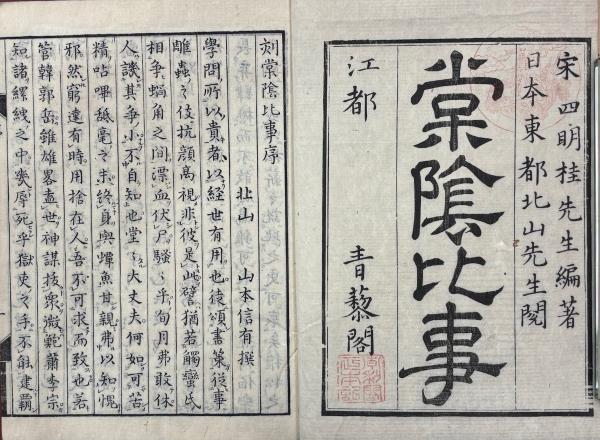 宋四明桂先生編著
日本東都北山先生閲
棠陰比事
江都 青藜閣
刻棠陰比事序
北山 山本信有撰
學問所以貴者以經世有用也徒頌書策從事
雕蟲之伎抗顏高視非彼是此譬猶若觸蠻氏
相爭蝸角之間漂血伏尸騷々乎旬月弗敢休
人譏其爭小不自知也堂々大丈夫何如可苦
精呫嗶舐毫之末終身與蟫魚其親弗以知愧
邪然窮達有時用捨在人吾不可求而致也若
管韓郭岳雖雄畧盖世神謀拔衆微難蕭李宗
知諸縲絏之中幾辱死乎獄吏之手不能建覇